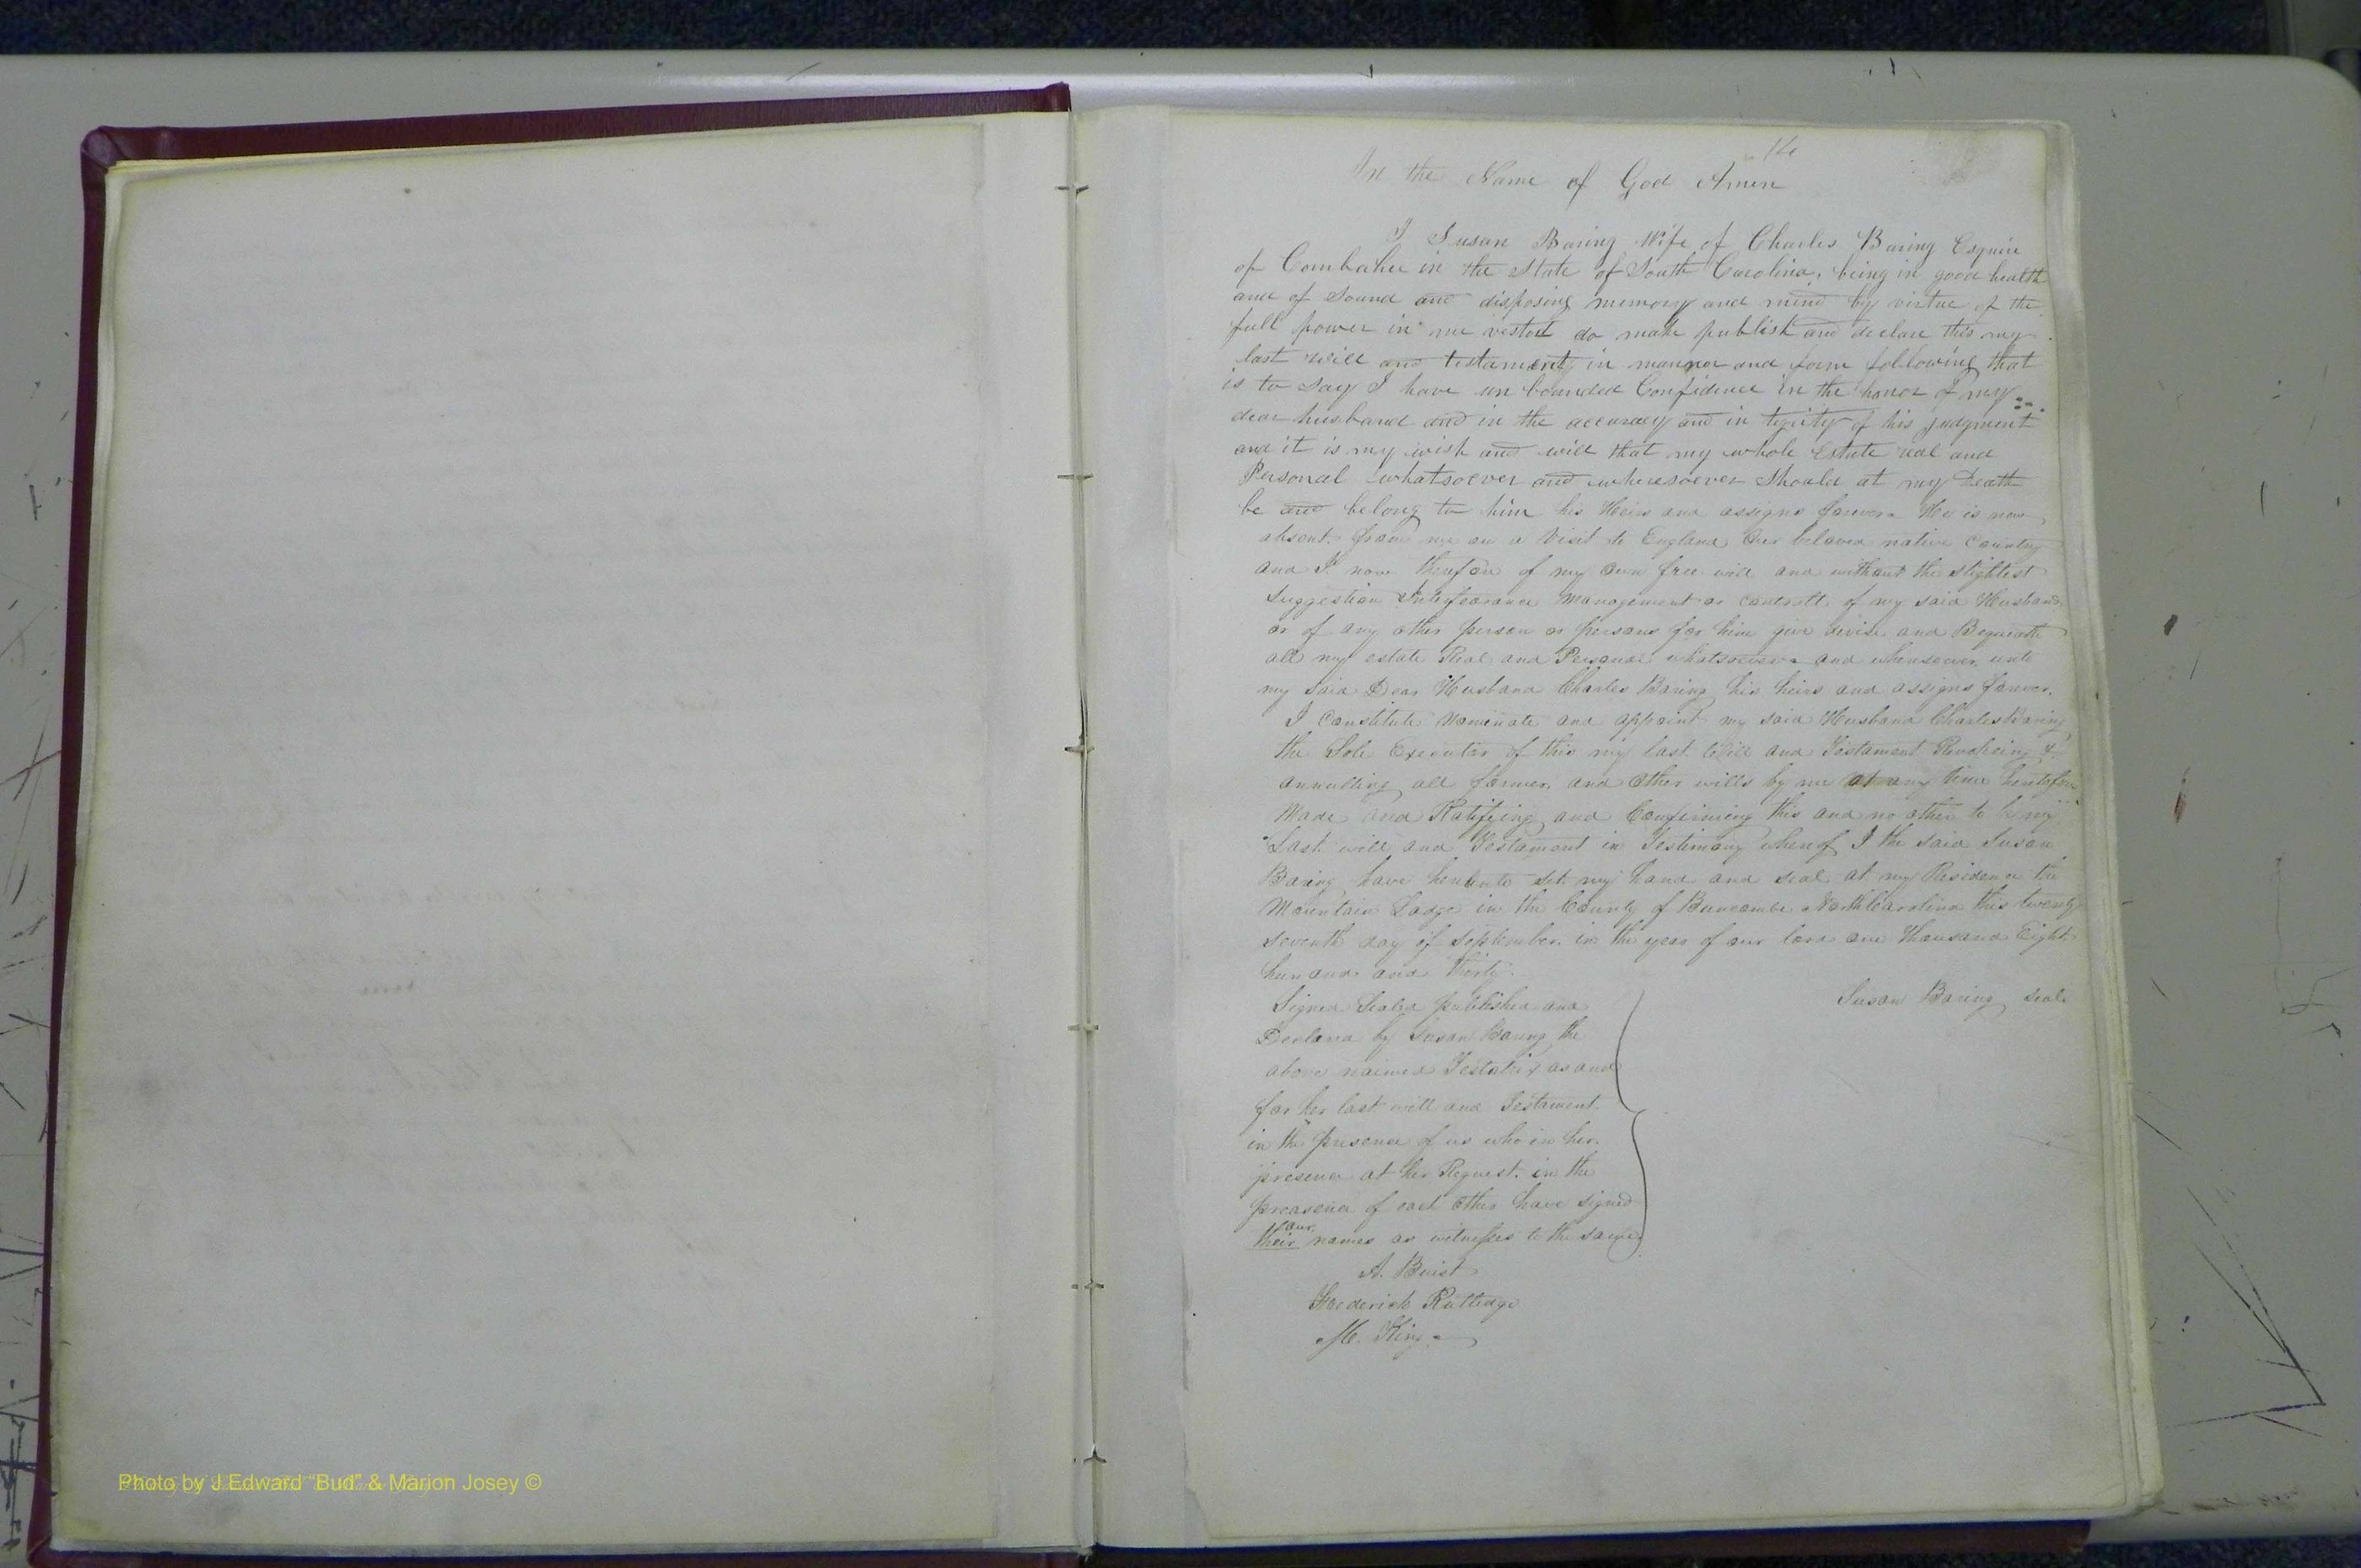 14
In the Name of God Amen
I Susan Baring Wife of Charles Baring Esquire
of Combahee in the State of South Carolina, being in good health
and of Sound and disposing memory and mind by virtue of the
full power in me vested do make publish and declare this my
last will and testament, in manner and form following that
is to Say I have un bounded Confidence in the honor of my
dear husband and in the accuracy and in tegrity of his judgment
and it is my wish and will that my whole Estate real and
Personal whatsoever and wheresoever should at my Death
be and belong to him his Heirs and assigns forever He is now
absent from me on a Visit to England Our beloved native Country
and I now therefore of my own free will and without the slightest
Suggestion Interfearance Management or controll of my said Husband
or of any other person or persons for him give devise and Bequeath
all my estate Real and Personal whatsoever and wheresoever unto
my Said Dear Husband Charles Baring his heirs and assigns forever.
I Constitute Nominate and appoint my said Husband Charles Baring
the Sole Executor of this my last Will and Testament Revokeing &
annulling all former and other wills by me at any time heretofore
Made and Ratifying and Confirming this and no other to be my
Last will and Testament in Testimony whereof I the said Susan
Baring have hereunto set my hand and seal at my Residence the
Mountain Lodge in the County of Buncombe North Carolina this twenty
seventh day of September in the year of our lord one thousand Eight
hundred and thirty.
Susan Baring seal
Signed Sealed published and
Declared by Susan Baring the
above naimed Testatrix as and
for her last will and Testament
in the presence of us who in her
presence at her Request. in the
preasence of each other have signed
our
their names as witnesses to the same
A. Buist
Frederick Rutledge
M. King
Photo by J Edward “Bud” & Marion Josey ©